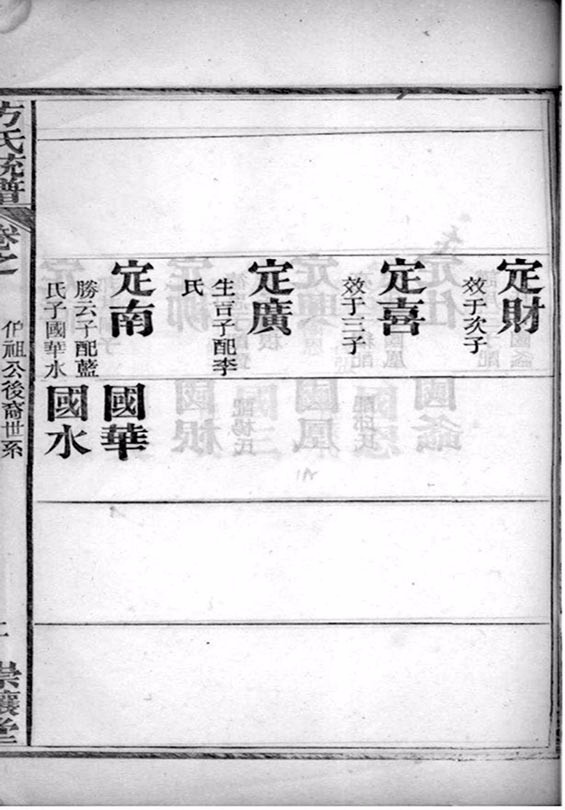 定財
效于次子
定喜
效于三子
定廣
生吉子配李
氏
定南
勝云子配藍
氏子國華水
國華
國水
方氏統譜
卷之
伊祖公後裔世系
崇讓堂